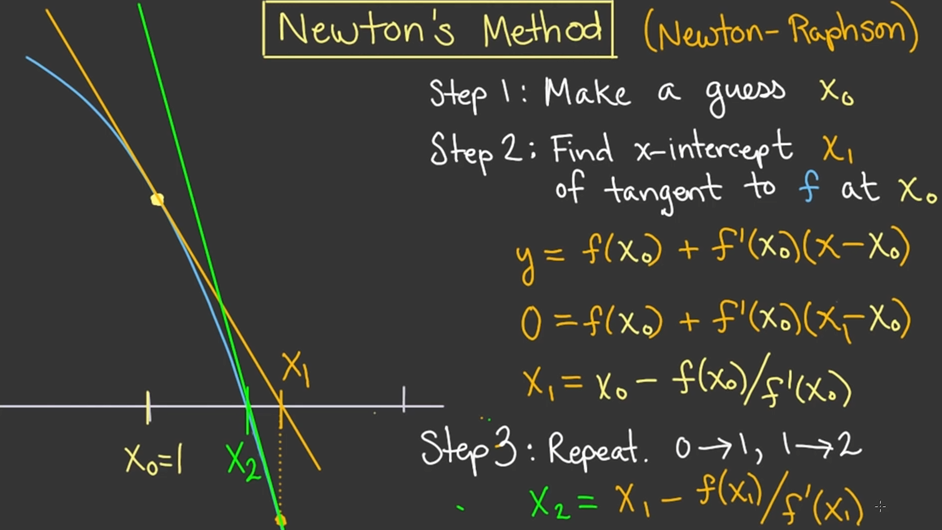 Newton's Method (Newton-Raphson)
Step 1: Make a guess x₀
Step 2: Find x-intercept x₁
of tangent to f at x₀
y = f(x₀) + f'(x₀)(x-x₀)
0 = f(x₀) + f'(x₀)(x₁-x₀)
x₁ = x₀ - f(x₀)/f'(x₀)
Step 3: Repeat. 0→1, 1→2
x₂ = x₁ - f(x₁)/f'(x₁)
x₁
x₀=1
x₂